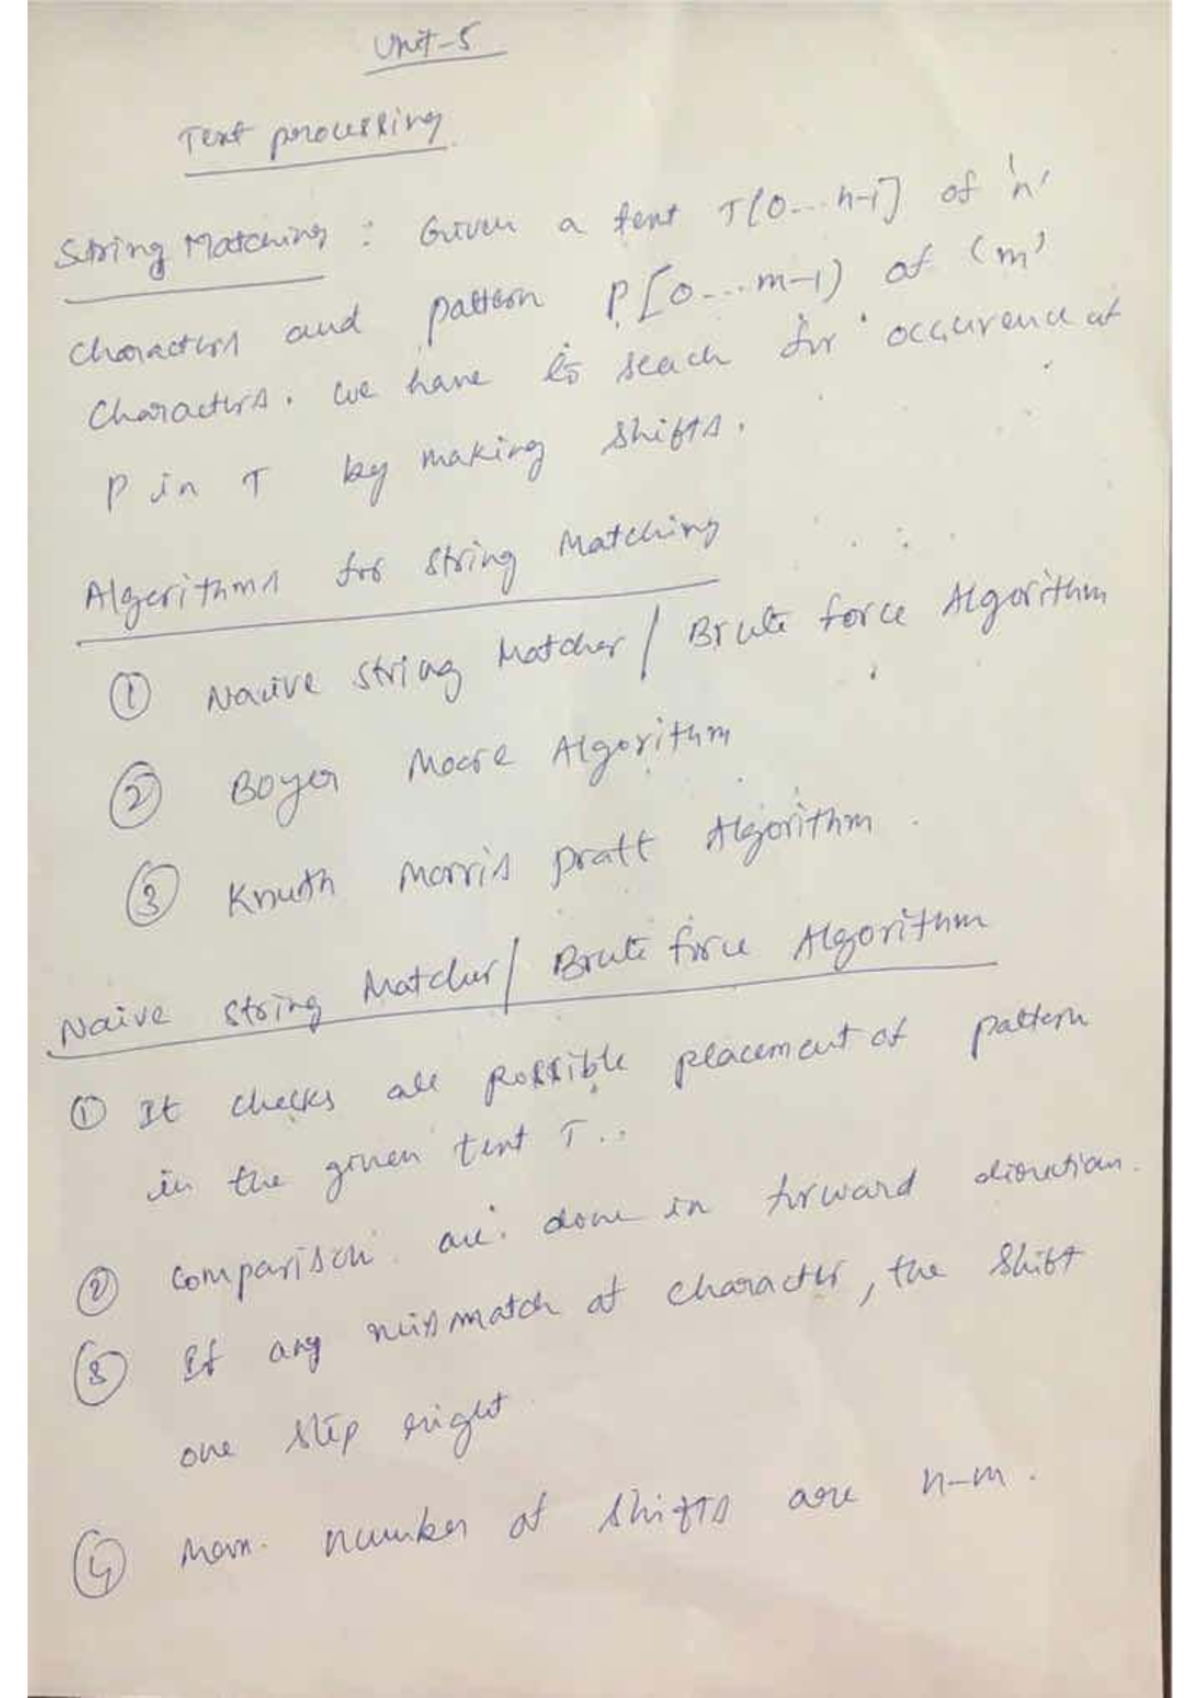 Unit-5
Text processing
String Matching : Given a text T[0...n-1] of 'n'
characters and pattern P[0...m-1) of (m)
characters. we have to seach for occurence of
P in T by making shifts.
Algorithms for string Matching
① Naive string Matcher / Brute force Algorithm
② Boyer Moore Algorithm
③ Knuth Morris Pratt Algorithm.
Naive string Matcher / Brute force Algorithm
① It checks all possible placement of pattern
in the given text T..
② Comparison are done in forward direction.
③ If any mismatch of character, the shift
one step right
④ Max. number of shifts are n-m.